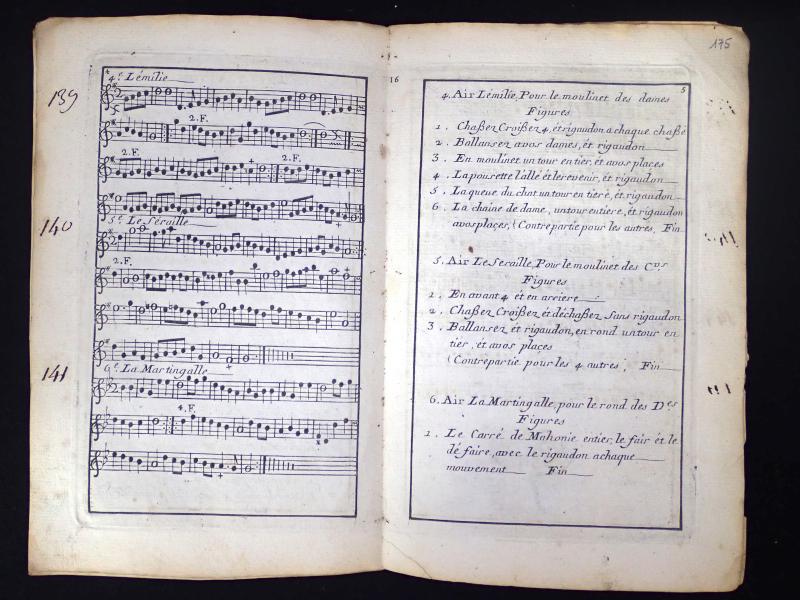 4
4.e Lémilie
139
2. F.
2. F.
5.e Le Séraille
140
2. F.
6.e La Martingalle
141
4. F.
175
16
5
4. Air Lémilie, Pour le moulinet des dames
Figures
1. Chaßez Croißez 4, ét rigaudon a chaque chaßé
2. Ballansez avos dames, ét rigaudon
3. En moulinet un tour entier, ét avos places
4. La pousette l'allé ét le revenir, ét rigaudon
5. La queue du chat un tour en tiere, ét rigaudon
6. La chaine de dame, un tour entiere, ét rigaudon
avos places, (Contrepartie pour les autres, Fin
5. Air Le Seraille, Pour le moulinet des C.rs
Figures
1. En avant 4 ét en ariere
2. Chaßez Croißez ét déchaßez Sans rigaudon
3. Ballansez ét rigaudon, en rond un tour en
tier, ét avos places
(Contrepartie pour les 4 autres, Fin
6. Air La Martingalle, pour le rond des D.es
Figures
1. Le Carré de Mahonie entier, le fair ét le
dé faire, avec le rigaudon achaque
mouvement Fin